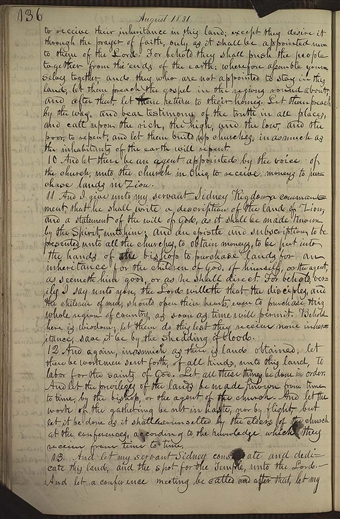 136
August 1831
to receive their inheritance in this land; except they desire it
through the prayer of faith, only as it shall be appointed unto
them of the Lord. For behold they shall push the people
together from the ends of the earth; wherefore assemble your-
selves together, and they who are not appointed to stay in this
land, let them preach the gospel in the regions round about;
and after that let them return to their homes. Let them preach
by the way, and bear testimony of the truth in all places,
and call upon the rich, the high, and the low, and the
poor, to repent; and let them build up churches, inasmuch as
the inhabitants of the earth will repent.
10. And let there be an agent appointed by the voice of
the church, unto the church in Ohio to receive moneys to pur-
chase lands in Zion.
11. And I give unto my servant Sidney Rigdon a command-
ment, that he shall write a description of the land of Zion,
and a statement of the will of God, as it shall be made known
by the Spirit unto him; and an epistle and subscription, to be
presented unto all the churches, to obtain moneys, to be put into
the hands of the bishop to purchase lands for an
inheritance for the children of God, of himself, or the agent,
as seemeth him good, or as he shall direct. For behold veri-
ly I say unto you, the Lord willeth that the disciples, and
the children of men, should open their hearts, even to purchase this
whole region of country, as soon as time will permit. Behold
here is wisdom; let them do this lest they receive none inher-
itance, save it be by the shedding of blood.
12. And again, inasmuch as there is land obtained, let
there be workmen sent forth, of all kinds, unto this land, to
labor for the saints of God. Let all these things be done in order.
And let the privileges of the lands be made known from time
to time, by the bishop, or the agent of the church. And let the
work of the gathering be not in haste, nor by flight, but
let it be done as it shall be counselled by the elders of the church
at the conferences, according to the knowledge which they
receive from time to time.
13. And let my servant Sidney consecrate and dedi-
cate this land, and the spot for the Temple, unto the Lord.
And let a conference meeting be called, and after that, let my